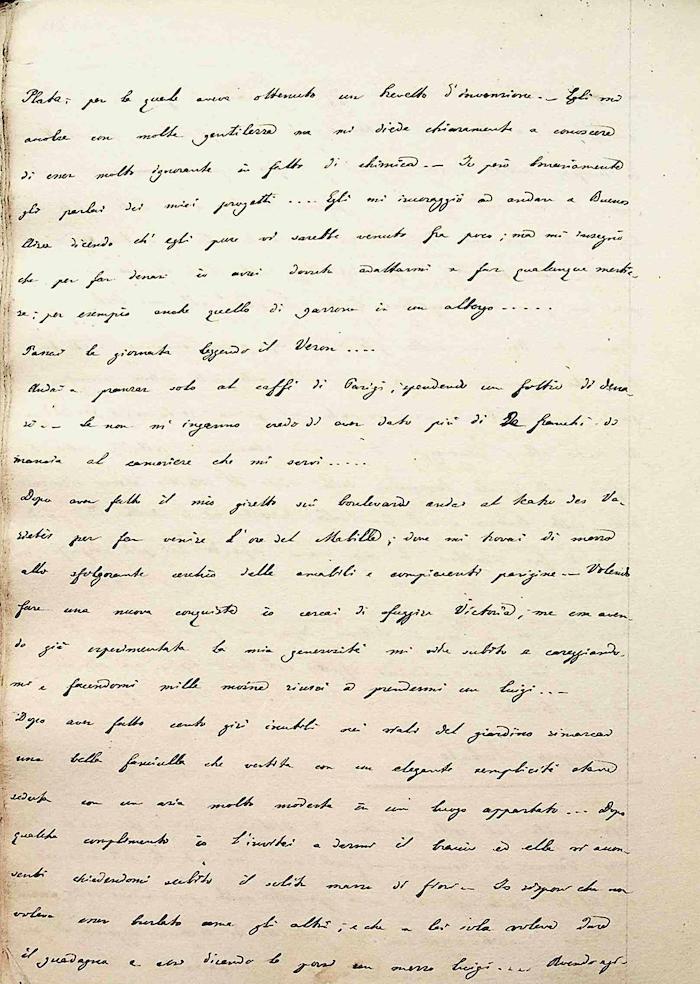 Plata; per la quale aveva ottenuto un brevetto d'invenzione. — Egli mi
accolse con molta gentilezza ma mi diede chiaramente a conoscere
di esser molto ignorante in fatto di chimica. — Io però bonariamente
gli parlai dei miei progetti .... Egli mi incoraggiò ad andare a Buenos
Aires dicendo ch'egli pure vi sarebbe venuto fra poco; ma mi insegnò
che per far denari io avrei dovuto adattarmi a far qualunque mestie-
re; per esempio anche quello di garzone in un albergo .....
Passai la giornata leggendo il Veron ....
Andai a pranzar solo al caffè di Parigi, spendendo un fottio di dena-
ri. — Se non mi inganno credo di aver dato più di franchi di
mancia al cameriere che mi servì .....
Dopo aver fatto il mio giretto sui boulevards andai al teatro des Va-
rietés per far venire l'ora del Mabille; dove mi trovai di mezzo
allo sfolgorante cerchio delle amabili e compiacenti parigine — Volendo
fare una nuova conquista io cercai di sfuggire Victoria; ma essa aven-
do già esperimentata la mia generosità mi vide subito e careggiando-
mi e facendomi mille moine riuscì a prendermi un luigi ... —
Dopo aver fatto cento giri inutili nei viali del giardino rimarcai
una bella fanciulla che vestita con un elegante semplicità stava
seduta con un aria molto modesta in un luogo appartato ... Dopo
qualche complimento io l'invitai a darmi il braccio ed ella vi accon-
sentì chiedendomi subito il solito mazzo di fiori — Io risposi che non
voleva esser burlato come gli altri; e che a lei sola voleva dare
il guadagno e così dicendo le porsi un mezzo luigi .... Avendo agi-